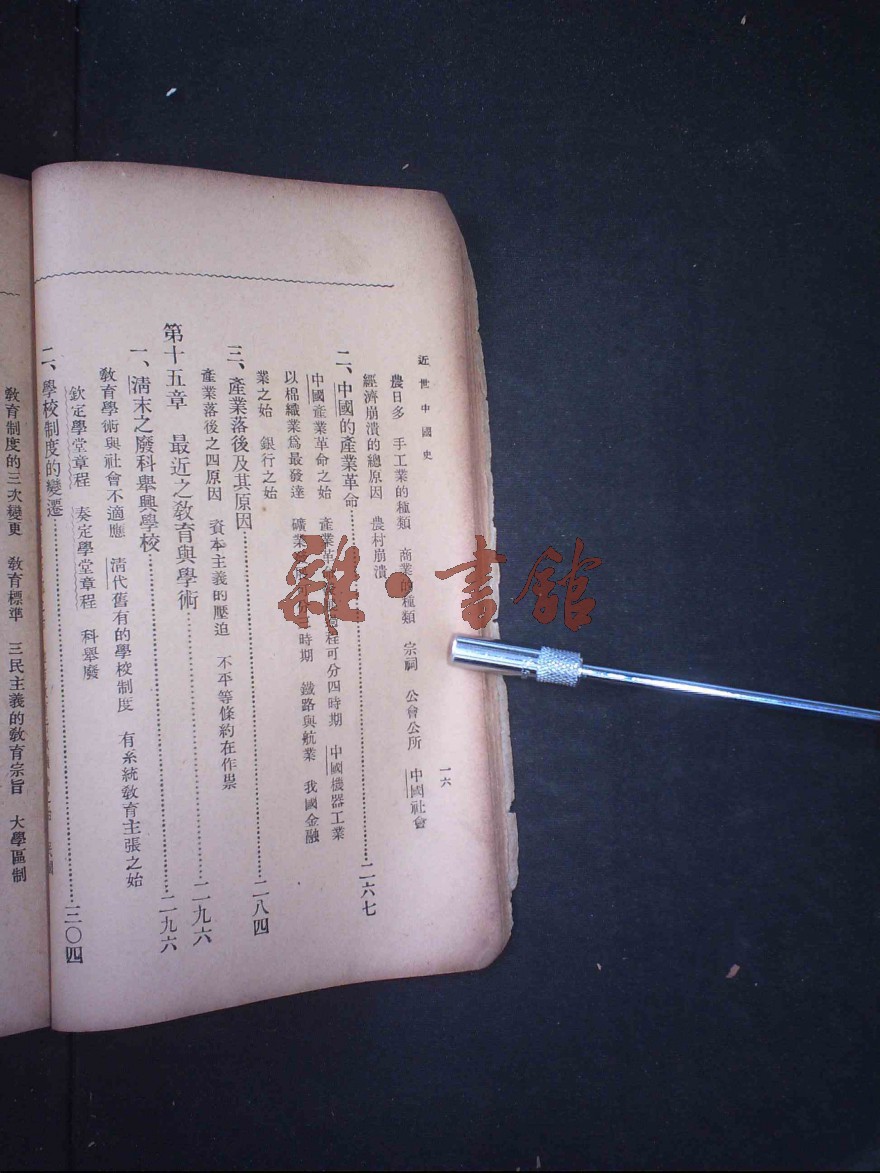 近世中國史
一六
農日多 手工業的種類 商業的種類 宗祠 公會公所 中國社會
經濟崩潰的總原因 農村崩潰
二、中國的產業革命…………二六七
中國產業革命之始 產業革 程可分四時期 中國機器工業
以棉織業爲最發達 礦業 時期 鐵路與航業 我國金融
業之始 銀行之始
三、產業落後及其原因…………二八四
產業落後之四原因 資本主義的壓迫 不平等條約在作祟
第十五章 最近之教育與學術…………二九六
一、淸末之廢科舉興學校…………二九六
教育學術與社會不適應 淸代舊有的學校制度 有系統教育主張之始
欽定學堂章程 奏定學堂章程 科舉廢
二、學校制度的變遷…………三〇四
教育制度的三次變更 教育標準 三民主義的教育宗旨 大學區制
雜·書館